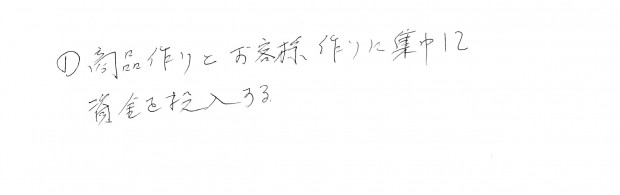 ① 商品作りとお客様作りに集中に
資金を投入する